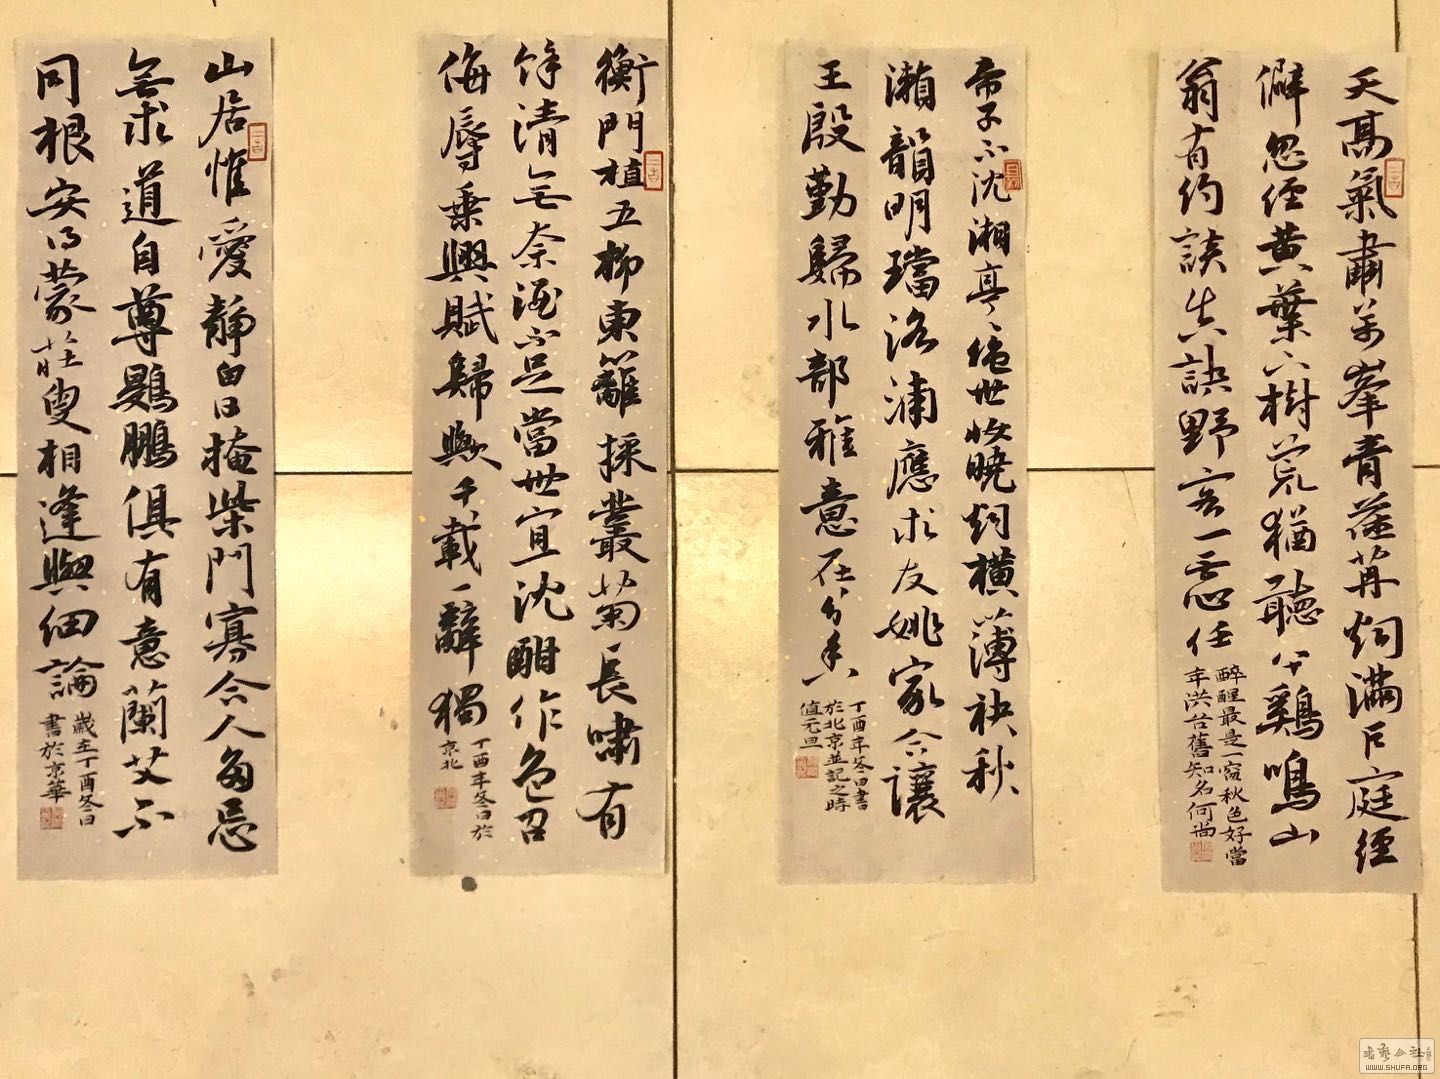 天高氣肅萬峯青荏苒烟滿戶庭徑
僻忽經黄葉下樹荒猶聽午鷄鳴山
翁有約談真訣野客一言任
醉醒最是一窗秋色好當
年洪谷舊知名何尚
帝子不沈湘亭亭絕世妝曉烟橫薄袂秋
瀨韻明璫洛浦應求友姚家合讓
王殷勤歸水部雅意在分香
丁酉年冬日書
於北京並記之時
值元旦
衡門植五柳東籬採叢菊長嘯有
餘清無奈酒不足當世宜沈酣作色召
侮辱乘興賦歸歟千載一辭獨
丁酉年冬日於
京北
山居惟愛靜白日掩柴門寡合人多忌
無求道自尊鷃鵬俱有意蘭艾不
同根安得蒙莊叟相逢與細論
歲在丁酉冬日
書於京華
書藝公社
WWW.SHUFA.ORG